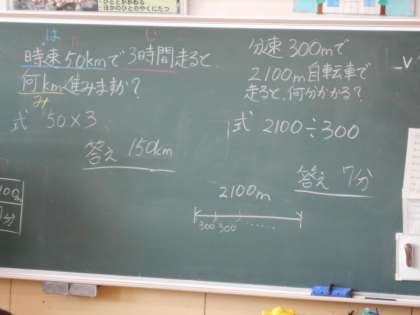 は
じ
時速50kmで3時間走ると、
何kmすすみますか?
み
式 50×3
答え 150km
分速300mで
2100m自転車で
走ると、何分かかる?
式 2100÷300
答え 7分
2100m
300 300 ……
分